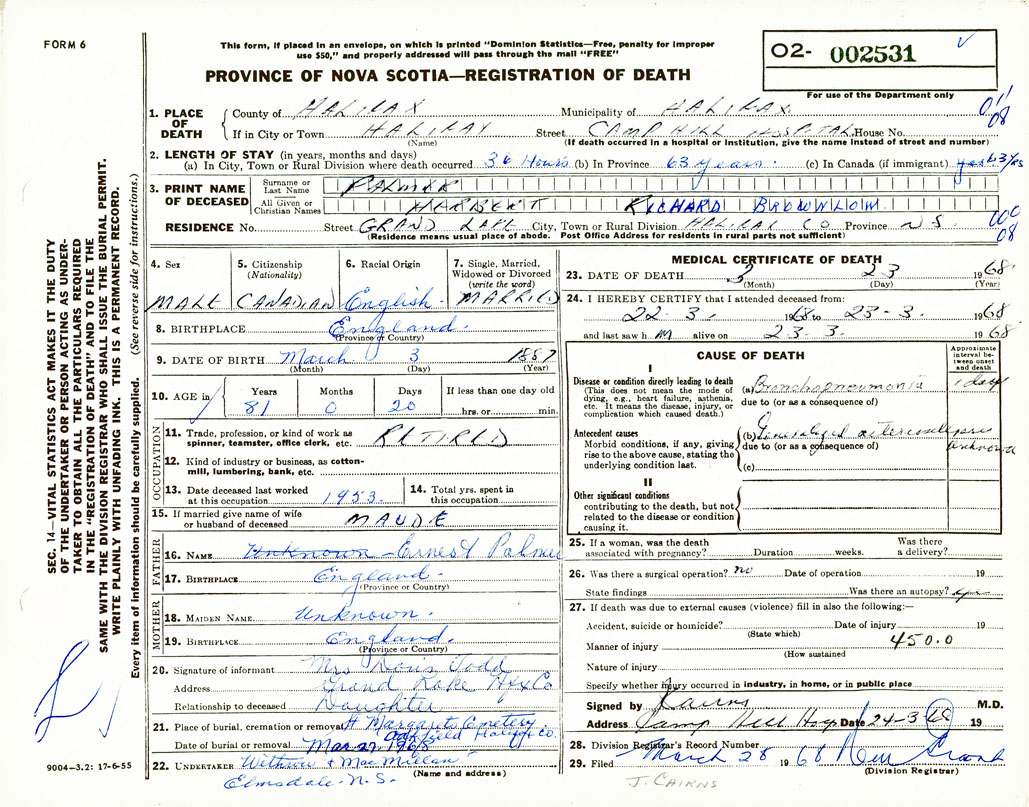 FORM 6
This form, if placed in an envelope, on which is printed "Dominion Statistics—Free, penalty for improper
use $50," and properly addressed will pass through the mail "FREE"
PROVINCE OF NOVA SCOTIA—REGISTRATION OF DEATH
O2- 002531
For use of the Department only
011
08
1. PLACE OF DEATH
County of HALIFAX Municipality of HALIFAX
If in City or Town HALIFAX Street CAMP HILL HOSPITAL House No.
(Name) (If death occurred in a hospital or institution, give the name instead of street and number)
2. LENGTH OF STAY (in years, months and days)
(a) In City, Town or Rural Division where death occurred 36 Hours (b) In Province 63 years. (c) In Canada (if immigrant) 63 yrs
3. PRINT NAME OF DECEASED
Surname or Last Name PALMER
All Given or Christian Names HERBERT RICHARD BROWNLOW
RESIDENCE No. Street GRAND LAKE City, Town or Rural Division HALIFAX CO Province NS
(Residence means usual place of abode. Post Office Address for residents in rural parts not sufficient)
08
4. Sex MALE
5. Citizenship (Nationality) CANADIAN
6. Racial Origin English.
7. Single, Married, Widowed or Divorced (write the word) MARRIED
8. BIRTHPLACE England.
(Province or Country)
9. DATE OF BIRTH March 3 1887
(Month) (Day) (Year)
10. AGE in Years 81 Months 0 Days 20 If less than one day old hrs. or min.
OCCUPATION
11. Trade, profession, or kind of work as spinner, teamster, office clerk, etc. RETIRED
12. Kind of industry or business, as cotton-mill, lumbering, bank, etc.
13. Date deceased last worked at this occupation 1953.
14. Total yrs. spent in this occupation
15. If married give name of wife or husband of deceased MAUDE
FATHER
16. NAME Unknown - Ernest Palmer
17. BIRTHPLACE England.
(Province or Country)
MOTHER
18. MAIDEN NAME Unknown.
19. BIRTHPLACE England.
(Province or Country)
20. Signature of informant Mrs Doris Todd
Address Grand Lake Hfx Co
Relationship to deceased Daughter
21. Place of burial, cremation or removal St Margarets Cemetery. Oakfield Halifax Co.
Date of burial or removal Mar 27. 1968
22. UNDERTAKER Withrow & MacMillan
(Name and address)
Elmsdale - N.S.
MEDICAL CERTIFICATE OF DEATH
23. DATE OF DEATH 3 23 1968
(Month) (Day) (Year)
24. I HEREBY CERTIFY that I attended deceased from:
22. 3. 1968 to 23-3. 1968
and last saw h m alive on 23.3. 1968
CAUSE OF DEATH
Approximate interval between onset and death
I
Disease or condition directly leading to death
(This does not mean the mode of dying, e.g., heart failure, asthenia, etc. It means the disease, injury, or complication which caused death.)
(a) Bronchopneumonia 1 day
due to (or as a consequence of)
Antecedent causes
Morbid conditions, if any, giving rise to the above cause, stating the underlying condition last.
(b) Generalized arteriosclerosis unknown
due to (or as a consequence of)
(c)
II
Other significant conditions
contributing to the death, but not related to the disease or condition causing it.
25. If a woman, was the death associated with pregnancy? Duration weeks. Was there a delivery?
26. Was there a surgical operation? no Date of operation 19
State findings Was there an autopsy?
27. If death was due to external causes (violence) fill in also the following:—
Accident, suicide or homicide? Date of injury 19
(State which)
Manner of injury 450.0
(How sustained
Nature of injury
Specify whether injury occurred in industry, in home, or in public place
Signed by Cairns M.D.
Address Camp Hill Hosp. Date 24-3 68 19
28. Division Registrar's Record Number
29. Filed March 28 1968
(Division Registrar)
J. CAIRNS
SEC. 14—VITAL STATISTICS ACT MAKES IT THE DUTY
OF THE UNDERTAKER OR PERSON ACTING AS UNDER-
TAKER TO OBTAIN ALL THE PARTICULARS REQUIRED
IN THE "REGISTRATION OF DEATH" AND TO FILE THE
SAME WITH THE DIVISION REGISTRAR WHO SHALL ISSUE THE BURIAL PERMIT.
WRITE PLAINLY WITH UNFADING INK. THIS IS A PERMANENT RECORD.
Every item of information should be carefully supplied. (See reverse side for instructions.)
9004—3.2: 17-6-55